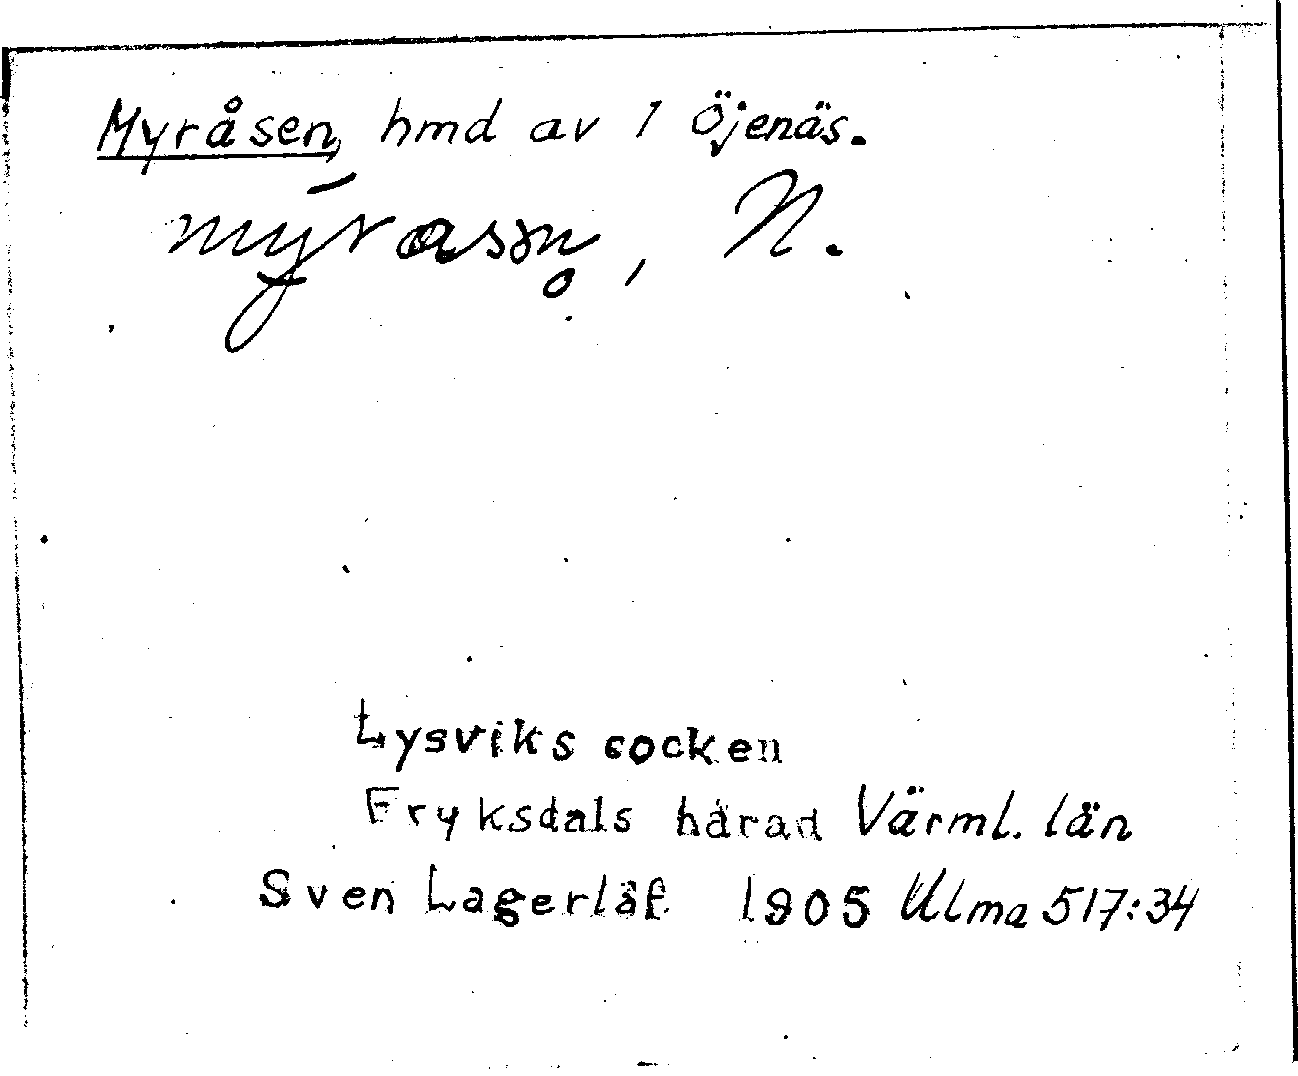 Myråsen, hmd av 1 Öjenäs.
mýrasn̥, N.
Lysviks socken
Fryksdals härad Värml. län
Sven Lagerlöf 1905 Ulma 517:34